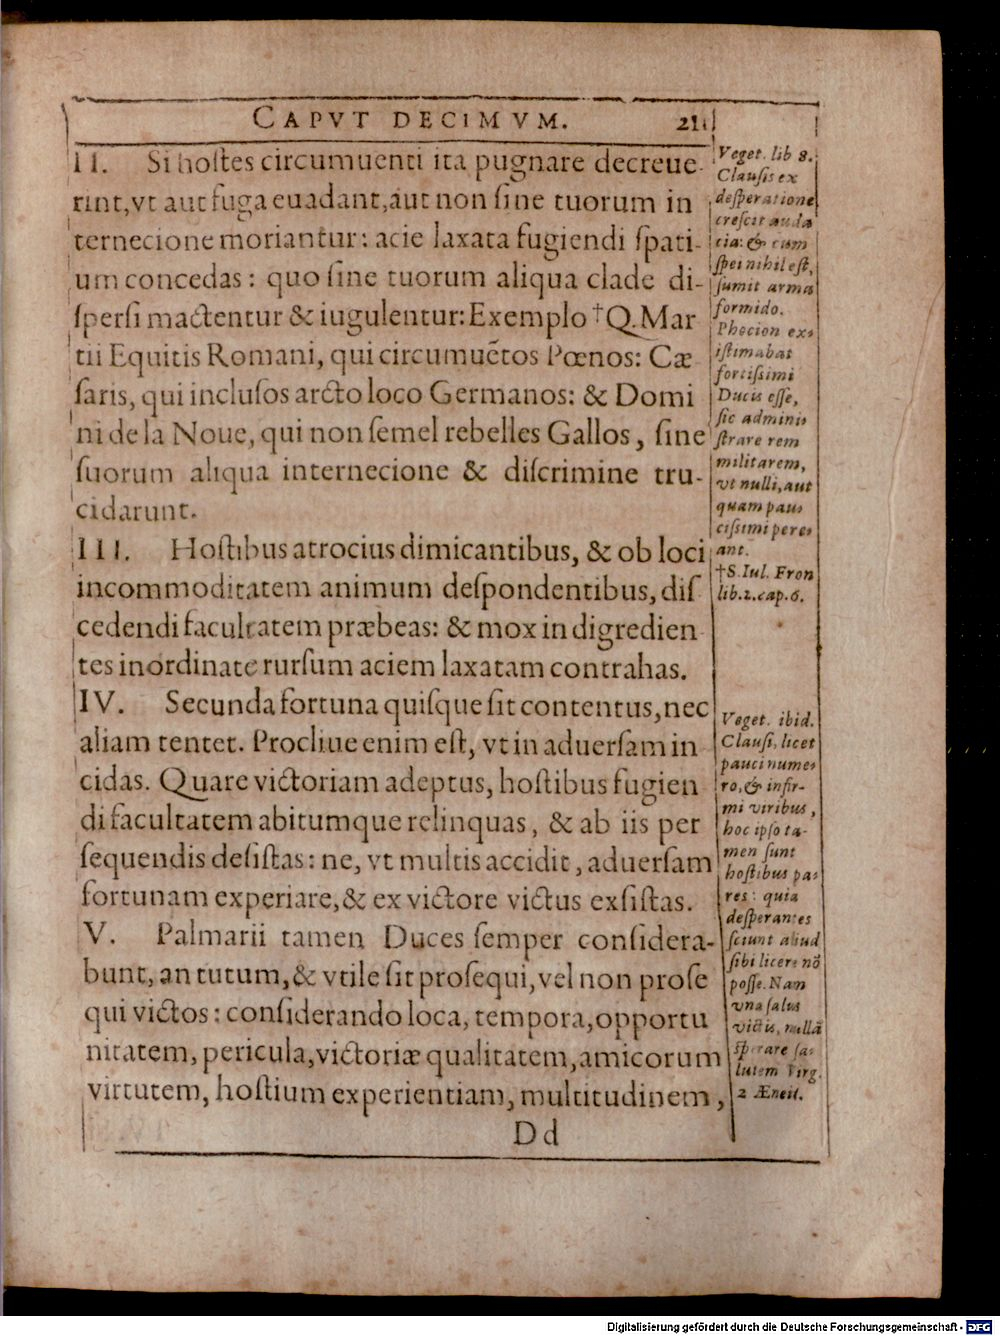 CAPVT DECIMVM. 211
II. Si hoſtes circumuenti ita pugnare decreue-
rint, vt aut fuga euadant, aut non ſine tuorum in
ternecione moriantur: acie laxata fugiendi ſpati-
um concedas: quo ſine tuorum aliqua clade di-
ſperſi mactentur & iugulentur: Exemplo †Q. Mar
tii Equitis Romani, qui circumuẽtos Pœnos: Cæ
ſaris, qui incluſos arcto loco Germanos: & Domi
ni de la Noue, qui non ſemel rebelles Gallos, ſine
ſuorum aliqua internecione & diſcrimine tru-
cidarunt.
III. Hoſtibus atrocius dimicantibus, & ob loci
incommoditatem animum deſpondentibus, diſ
cedendi facultatem præbeas: & mox in digredien
tes inordinate rurſum aciem laxatam contrahas.
IV. Secunda fortuna quiſque ſit contentus, nec
aliam tentet. Procliue enim eſt, vt in aduerſam in
cidas. Quare victoriam adeptus, hoſtibus fugien
di facultatem abitumque relinquas, & ab iis per
ſequendis deſiſtas: ne, vt multis accidit, aduerſam
fortunam experiare, & ex victore victus exſiſtas.
V. Palmarii tamen Duces ſemper conſidera-
bunt, an tutum, & vtile ſit proſequi, vel non proſe
qui victos: conſiderando loca, tempora, opportu
nitatem, pericula, victoriæ qualitatem, amicorum
virtutem, hoſtium experientiam, multitudinem,
Dd
Veget. lib 8.
Clauſis ex
deſperatione
creſcit auda
cia: & cum
ſpei nihil eſt,
ſumit arma
formido.
Phocion ex-
iſtimabat
fortiſsimi
Ducis eſſe,
ſic adminis
ſtrare rem
militarem,
vt nulli, aut
quam pau-
ciſsimi pere-
ant.
†S. Iul. Fron
lib. 2. cap. 6.
Veget. ibid.
Clauſi, licet
pauci nume-
ro, & infir-
mi viribus,
hoc ipſo ta-
men ſunt
hoſtibus pa-
res: quia
deſperantes
ſciunt aliud
ſibi licere nõ
poſſe. Nam
vna ſalus
victis, nullã
ſperare ſa-
lutem Virg.
2 Æneid.
Digitalisierung gefördert durch die Deutsche Forschungsgemeinschaft - DFG